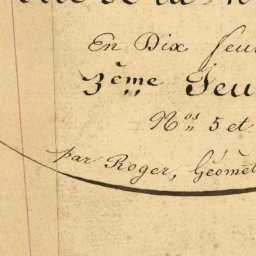 En Dix feu
3ème feu
Nos 5 et
par Roger, Géomèt